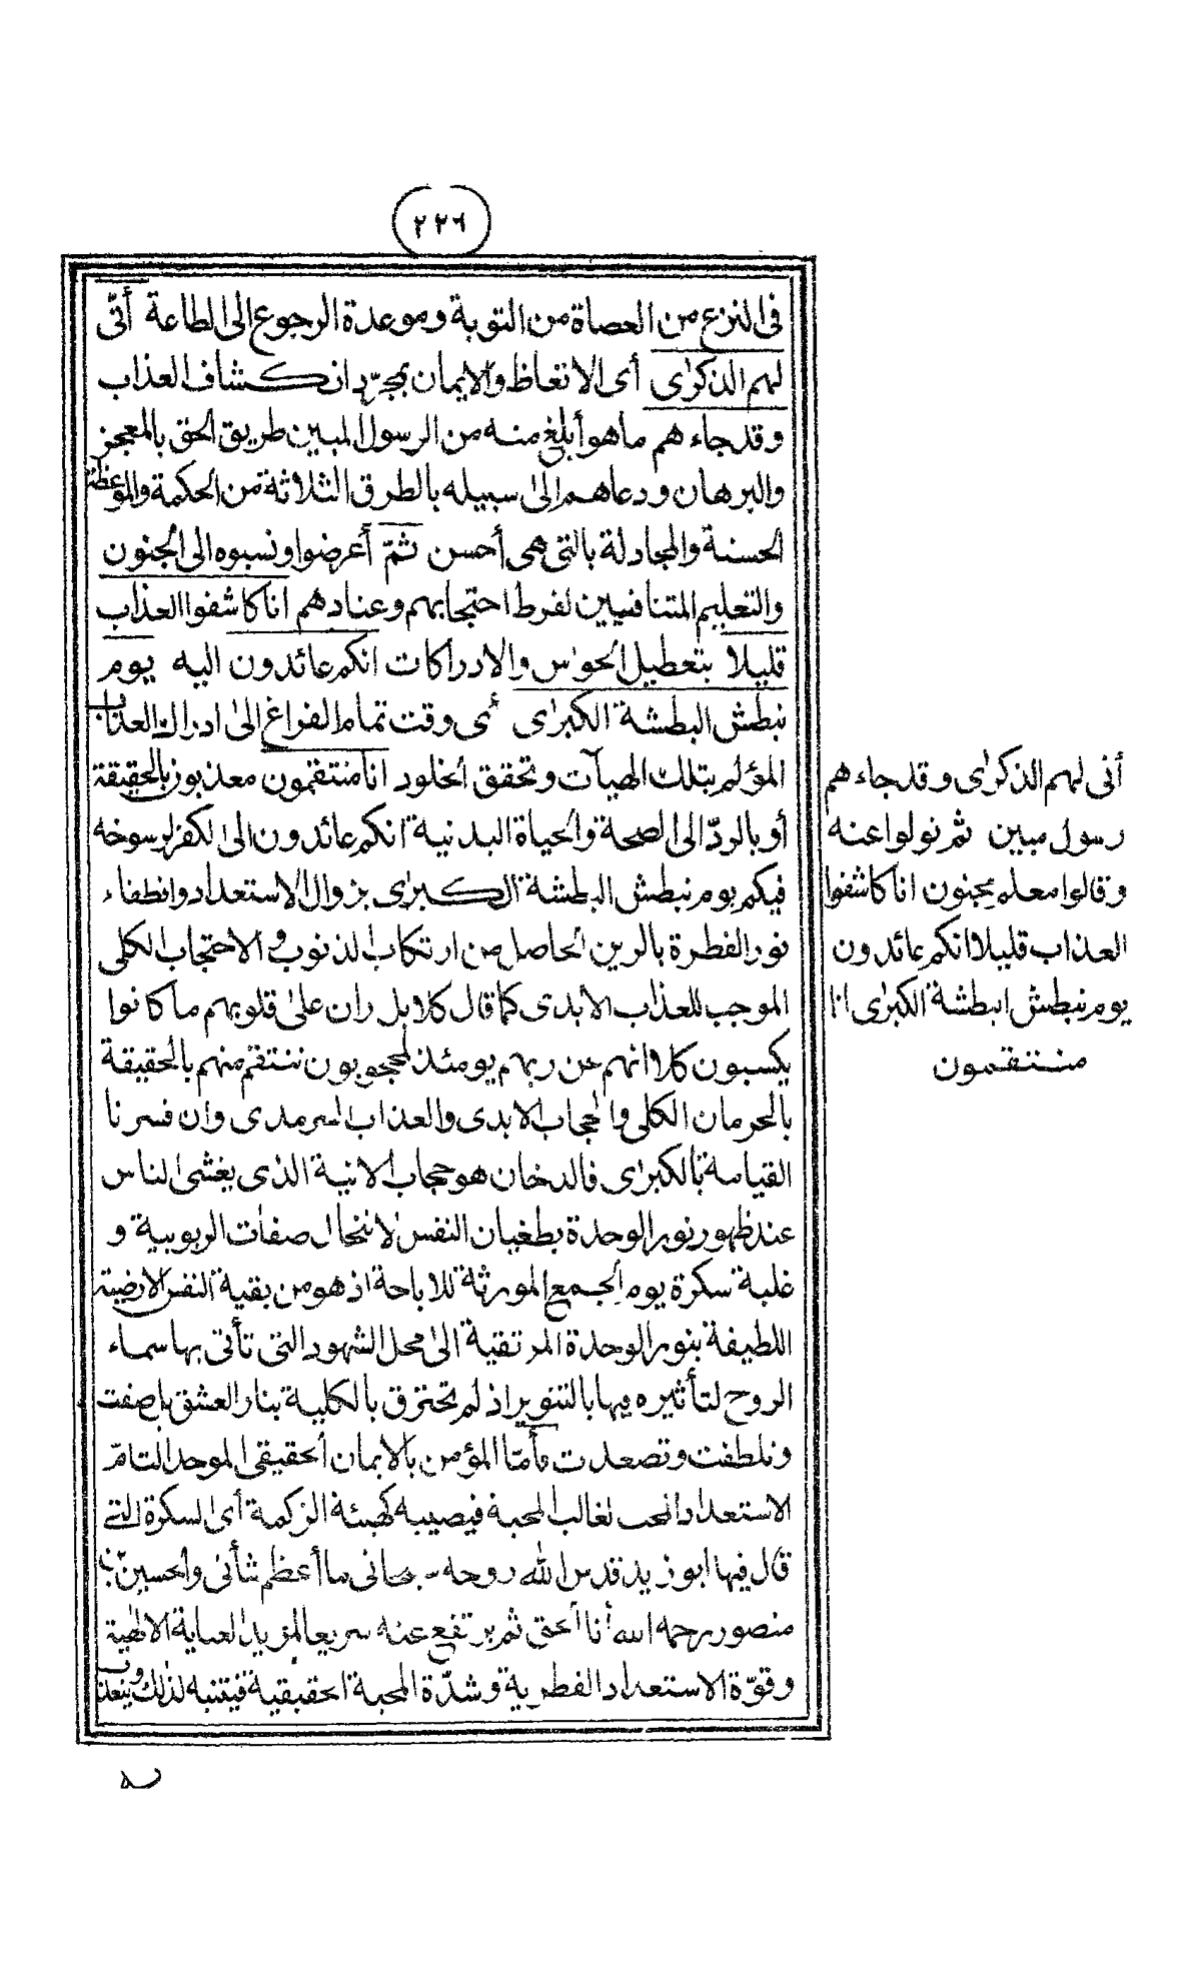 ٢٢٦
فى النزع من العصاة من التوبة وموعدة الرجوع الى الطاعة أنّى
لهم الذكرٰى أى الاتعاظ والايمان بمجرّد انكشاف العذاب
وقد جاءهم ما هو أبلغ منه من الرسول المبين طريق الحق بالمعجز
والبرهان ودعاهم الىٰ سبيله بالطرق الثلاثة من الحكمة والموعظة
الحسنة والمجادلة بالتى هى أحسن ثمّ أعرضوا ونسبوه الى الجنون
والتعليم المتنافيين لفرط احتجابهم وعنادهم انا كاشفوا العذاب
قليلا بتعطيل الحواس والادراكات انكم عائدون اليه يوم
نبطش البطشة الكبرٰى أى وقت تمام الفراغ الىٰ ادراك العذاب
المؤلم بتلك الهيآت وتحقق الخلود انا منتقمون معذبون بالحقيقة
أو بالردّ الى الصحة والحياة البدنية انكم عائدون الى الكفر لرسوخه
فيكم يوم نبطش البطشة الكبرٰى بزوال الاستعداد وانطفاء
نور الفطرة بالرين الحاصل من ارتكاب الذنوب والاحتجاب الكلى
الموجب للعذاب الابدى كما قال كلا بل ران علىٰ قلوبهم ما كانوا
يكسبون كلا انهم عن ربهم يومئذ لمحجوبون ننتقم منهم بالحقيقة
بالحرمان الكلى والحجاب الابدى والعذاب السرمدى وان فسرنا
القيامة بالكبرٰى فالدخان هو حجاب الانية الذى يغشى الناس
عند ظهور نور الوحدة بطغيان النفس لانتحال صفات الربوبية و
غلبة سكرة يوم الجمع المورثة للاباحة اذ هو من بقية النفس الارضية
اللطيفة بنور الوحدة المرتقية الىٰ محل الشهود التى تأتى بها سماء
الروح لتأثيره فيها بالتنوير اذ لم تحترق بالكلية بنار العشق بل صفت
وتلطفت وتصعدت فأمّا المؤمن بالايمان الحقيقى الموحد التامّ
الاستعداد المحب لغالب المحبة فيصيبه كهيئة الزكمة أى السكرة التى
قال فيها ابو زيد قدس الله روحه سبحانى ما أعظم شأنى والحسين بن
منصور رحمه الله أنا الحق ثم يرتفع عنه سريعا لمزيد العناية الالهية
وقوّة الاستعداد الفطرية وشدّة المحبة الحقيقية فيتنبه لذلك ويتعذب
به
أنى لهم الذكرٰى وقد جاءهم
رسول مبين ثم تولوا عنه
وقالوا معلم مجنون انا كاشفوا
العذاب قليلا انكم عائدون
يوم نبطش البطشة الكبرٰى انا
منتقمون